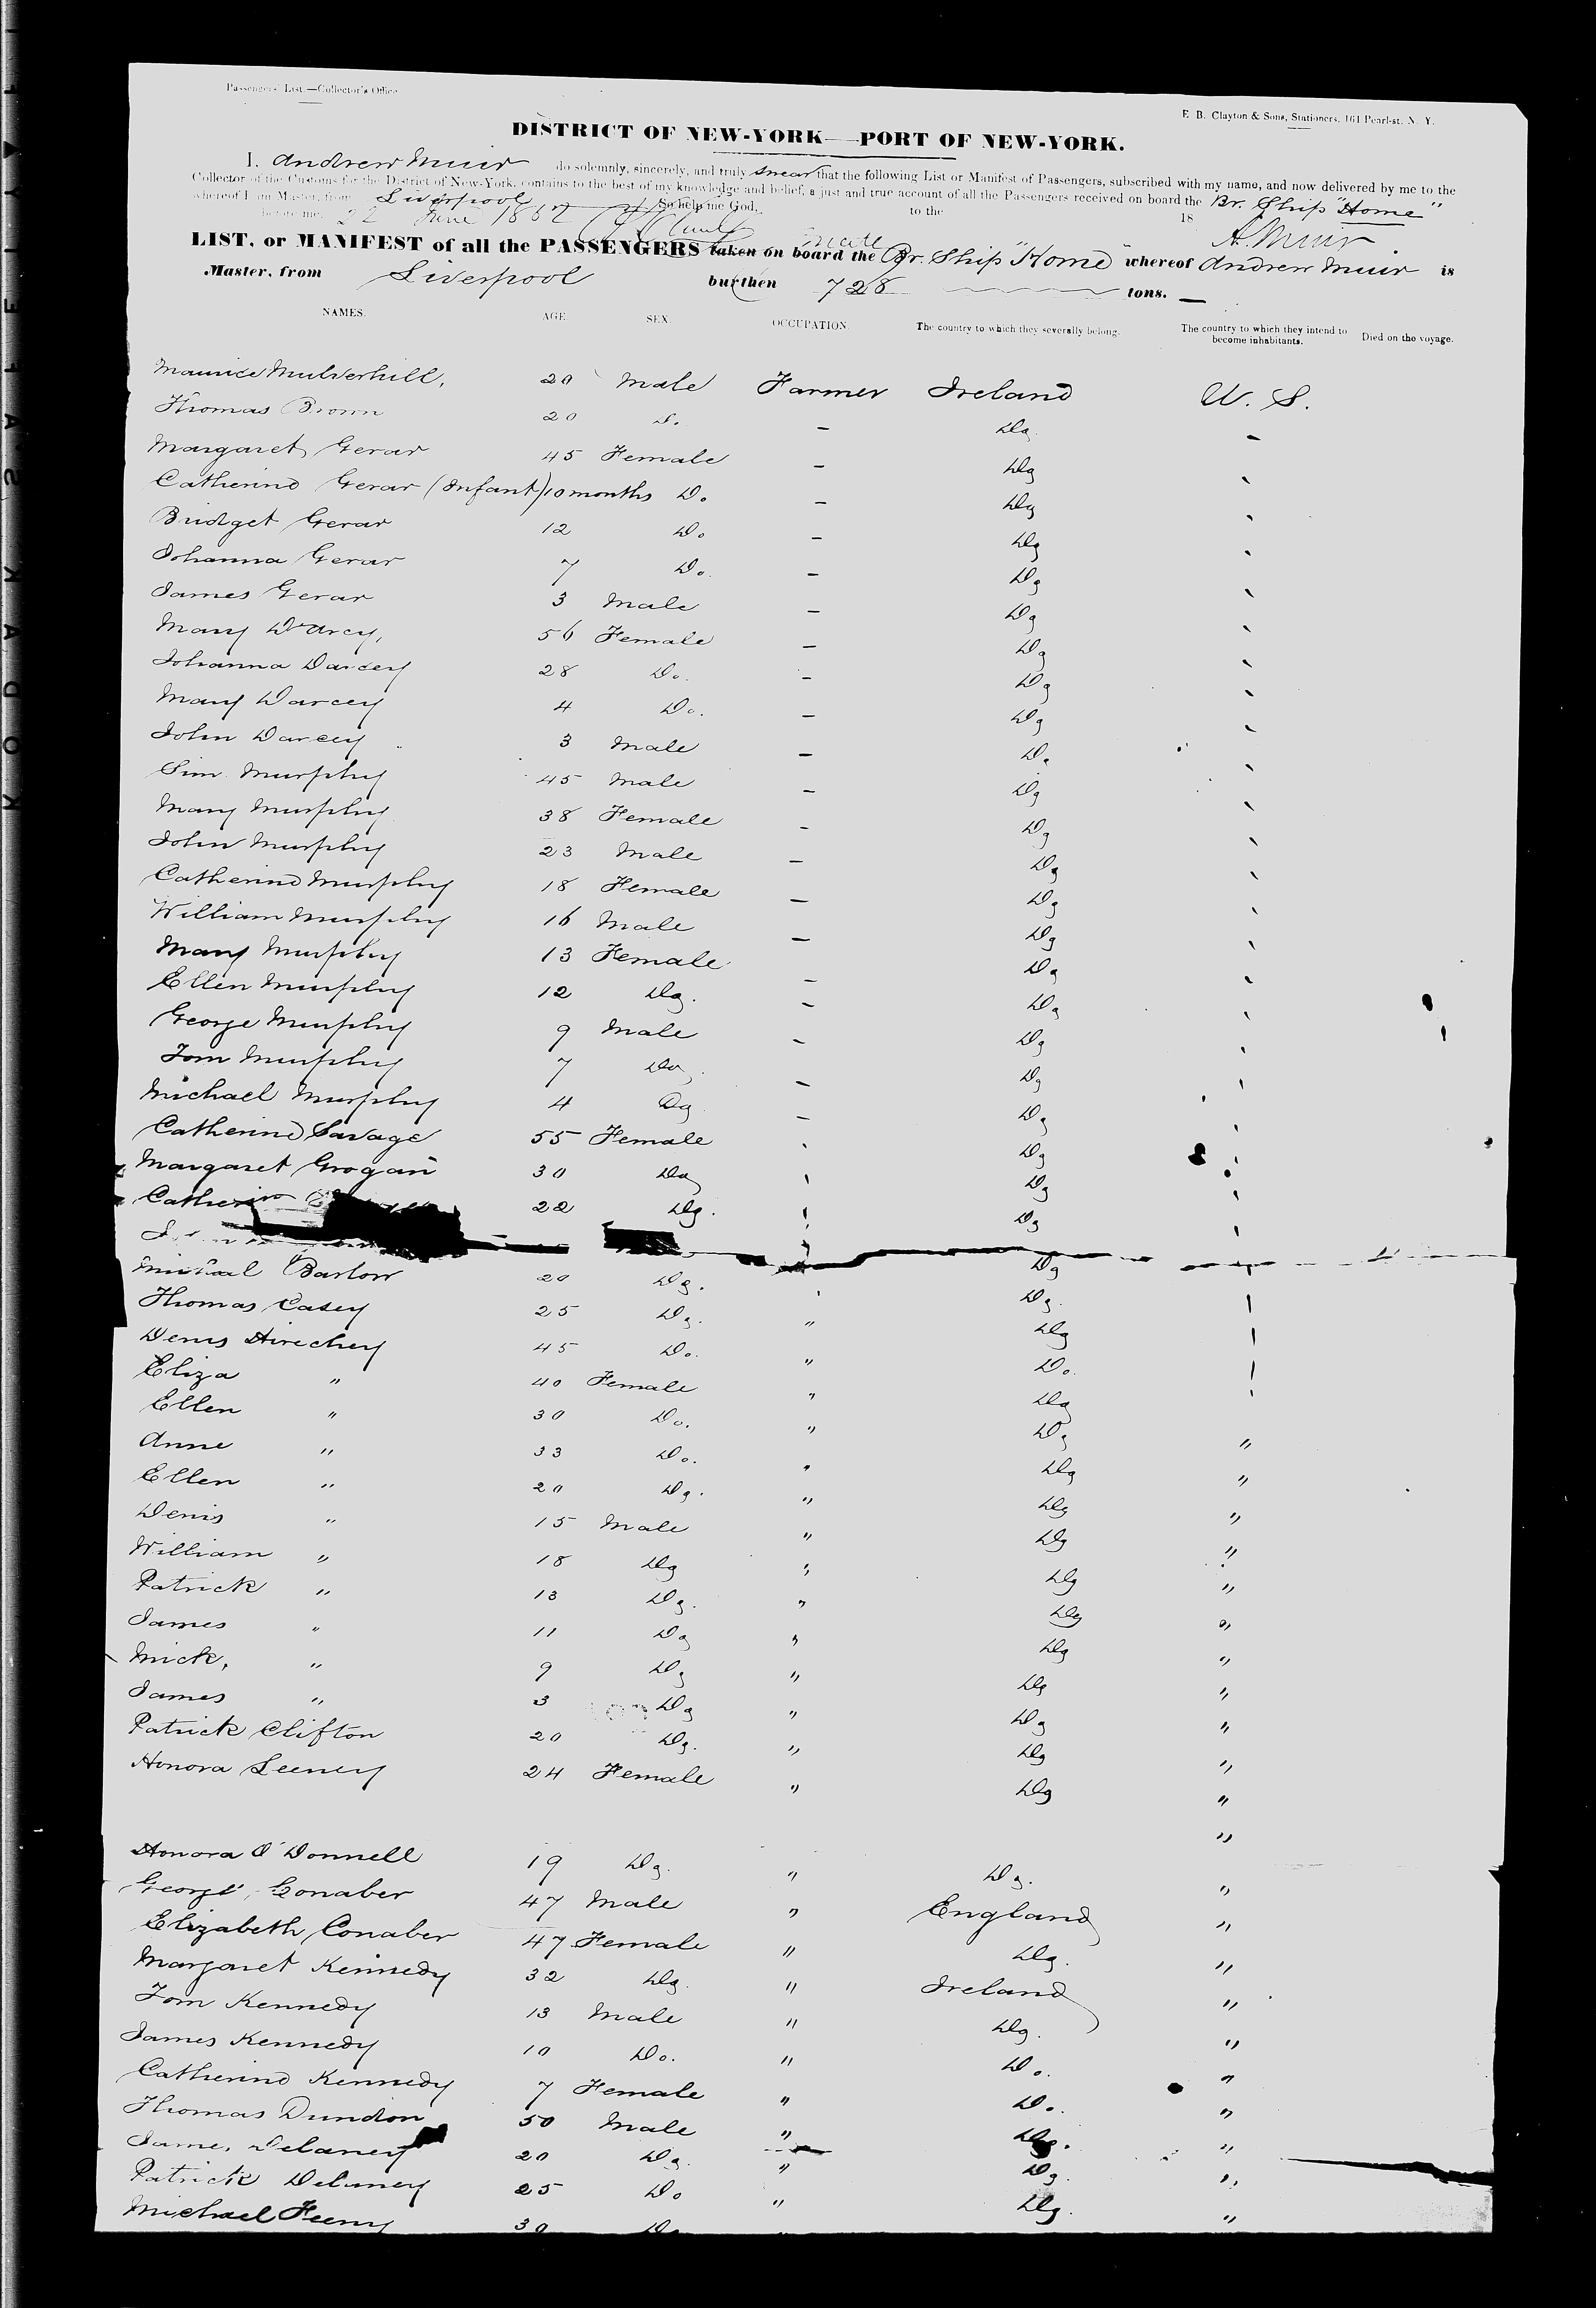 Passengers List.—Collector's Office
E. B. Clayton & Sons, Stationers, 161 Pearl-st. N. Y.
DISTRICT OF NEW-YORK—PORT OF NEW-YORK.
I, Andrew Muir do solemnly, sincerely, and truly swear that the following List or Manifest of Passengers, subscribed with my name, and now delivered by me to the
Collector of the Customs for the District of New-York, contains to the best of my knowledge and belief, a just and true account of all the Passengers received on board the Br. Ship "Home"
whereof I am Master, from Liverpool So help me God.
before me, 22 June 1862 to the 18 A. Muir
LIST, or MANIFEST of all the PASSENGERS taken on board the Br. Ship "Home" whereof Andrew Muir is
Master, from Liverpool burthen 728 tons.
NAMES. AGE. SEX. OCCUPATION. The country to which they severally belong. The country to which they intend to become inhabitants. Died on the voyage.
Maurice Mulverhill, 20 Male Farmer Ireland U. S.
Thomas Brown 20 D. — Do
Margaret Gerar 45 Female — Do
Catherine Gerar (Infant) 10 months Do — Do
Bridget Gerar 12 Do — Do
Johanna Gerar 7 Do. — Do
James Gerar 3 Male — Do
Mary D'Arcy, 56 Female — Do
Johanna Darcey 28 Do. — Do
Mary Darcey 4 Do. — Do
John Darcey 3 Male — Do
Sim Murphy 45 Male — Do
Mary Murphy 38 Female — Do
John Murphy 23 Male — Do
Catherine Murphy 18 Female — Do
William Murphy 16 Male — Do
Mary Murphy 13 Female — Do
Ellen Murphy 12 Do. — Do
George Murphy 9 Male — Do
Tom Murphy 7 Do — Do
Michael Murphy 4 Do — Do
Catherine Savage 55 Female Do
Margaret Grogan 30 Do Do
Catherine 22 Do. Do
Do
Michael Barlow 20 Do. Do
Thomas Casey 25 Do. " Do
Denis 45 Do. " Do.
Eliza " 40 Female " Do
Ellen " 30 Do. " Do "
Anne " 33 Do. " Do "
Ellen " 20 Do. " Do "
Denis " 15 Male " Do "
William " 18 Do " Do "
Patrick " 13 Do. " Do "
James " 11 Do " Do "
Mick, " 9 Do " Do "
James " 3 Do " Do "
Patrick Clifton 20 Do. " Do "
Honora Leeney 24 Female " Do "
"
Honora O'Donnell 19 Do. " Do. "
George Conaber 47 Male " England "
Elizabeth Conaber 47 Female " Do. "
Margaret Kennedy 32 Do. " Ireland "
Tom Kennedy 13 Male " Do. "
James Kennedy 10 Do. " Do. "
Catherine Kennedy 7 Female " Do. "
Thomas Dundon 50 Male " Do. "
James Delaney 20 Do. " Do. "
Patrick Delaney 25 Do " Do. "
Michael Feeny 30 Do